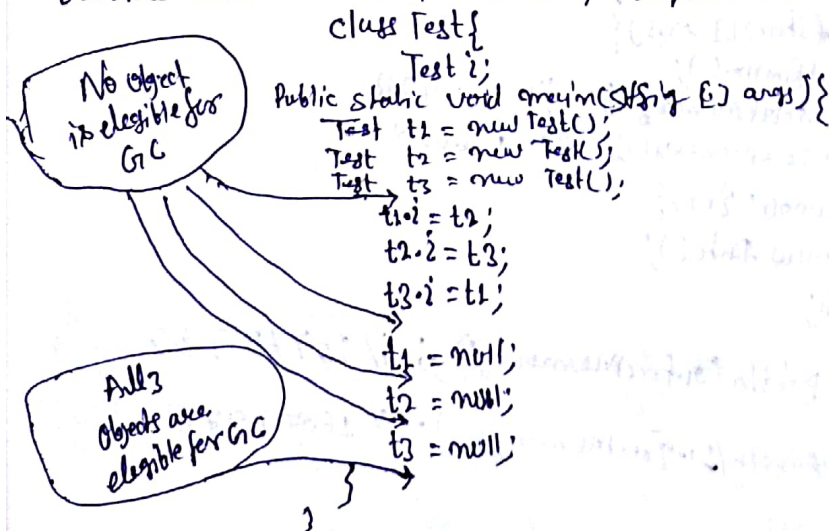 class Test{
Test i;
Public static void main(String [] args){
Test t1 = new Test();
Test t2 = new Test();
Test t3 = new Test();
t1.i = t2;
t2.i = t3;
t3.i = t1;
t1 = null;
t2 = null;
t3 = null;
}
}
No object
is elegible for
GC
All 3
objects are
elegible for GC